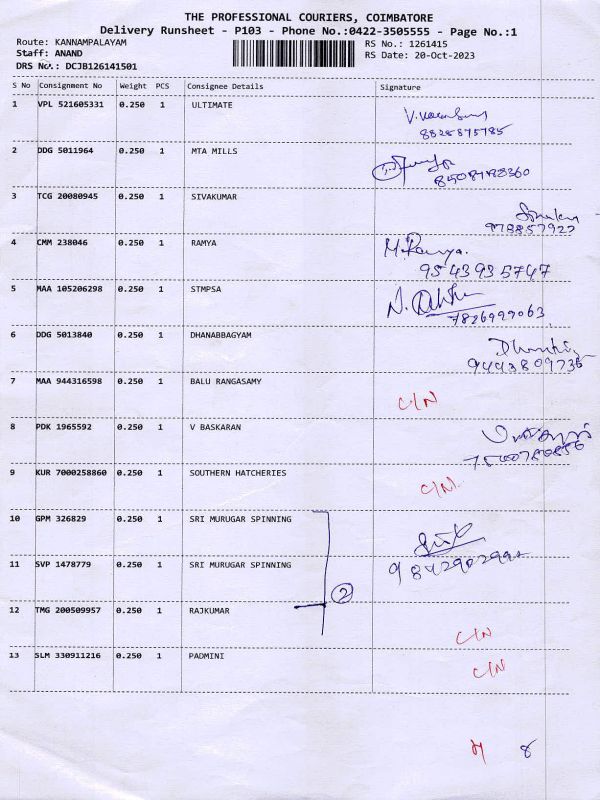 THE PROFESSIONAL COURIERS, COIMBATORE
Delivery Runsheet - P103 - Phone No.:0422-3505555 - Page No.:1
Route: KANNAMPALAYAM RS No.: 1261415
Staff: ANAND RS Date: 20-Oct-2023
DRS No.: DCJB126141501
S No Consignment No Weight PCS Consignee Details Signature
1 VPL 521605331 0.250 1 ULTIMATE
8828875785
2 DDG 5011964 0.250 1 MTA MILLS
3 TCG 20080945 0.250 1 SIVAKUMAR
978857922
4 CMM 238046 0.250 1 RAMYA M.Ramya.
9543935747
5 MAA 105206298 0.250 1 STMPSA
7826999063
6 DDG 5013840 0.250 1 DHANABBAGYAM
9443809736
7 MAA 944316598 0.250 1 BALU RANGASAMY
C/N
8 PDK 1965592 0.250 1 V BASKARAN
9 KUR 7000258860 0.250 1 SOUTHERN HATCHERIES
C/N.
10 GPM 326829 0.250 1 SRI MURUGAR SPINNING
11 SVP 1478779 0.250 1 SRI MURUGAR SPINNING
2
12 TMG 200509957 0.250 1 RAJKUMAR
C/N
13 SLM 330911216 0.250 1 PADMINI
C/N
8